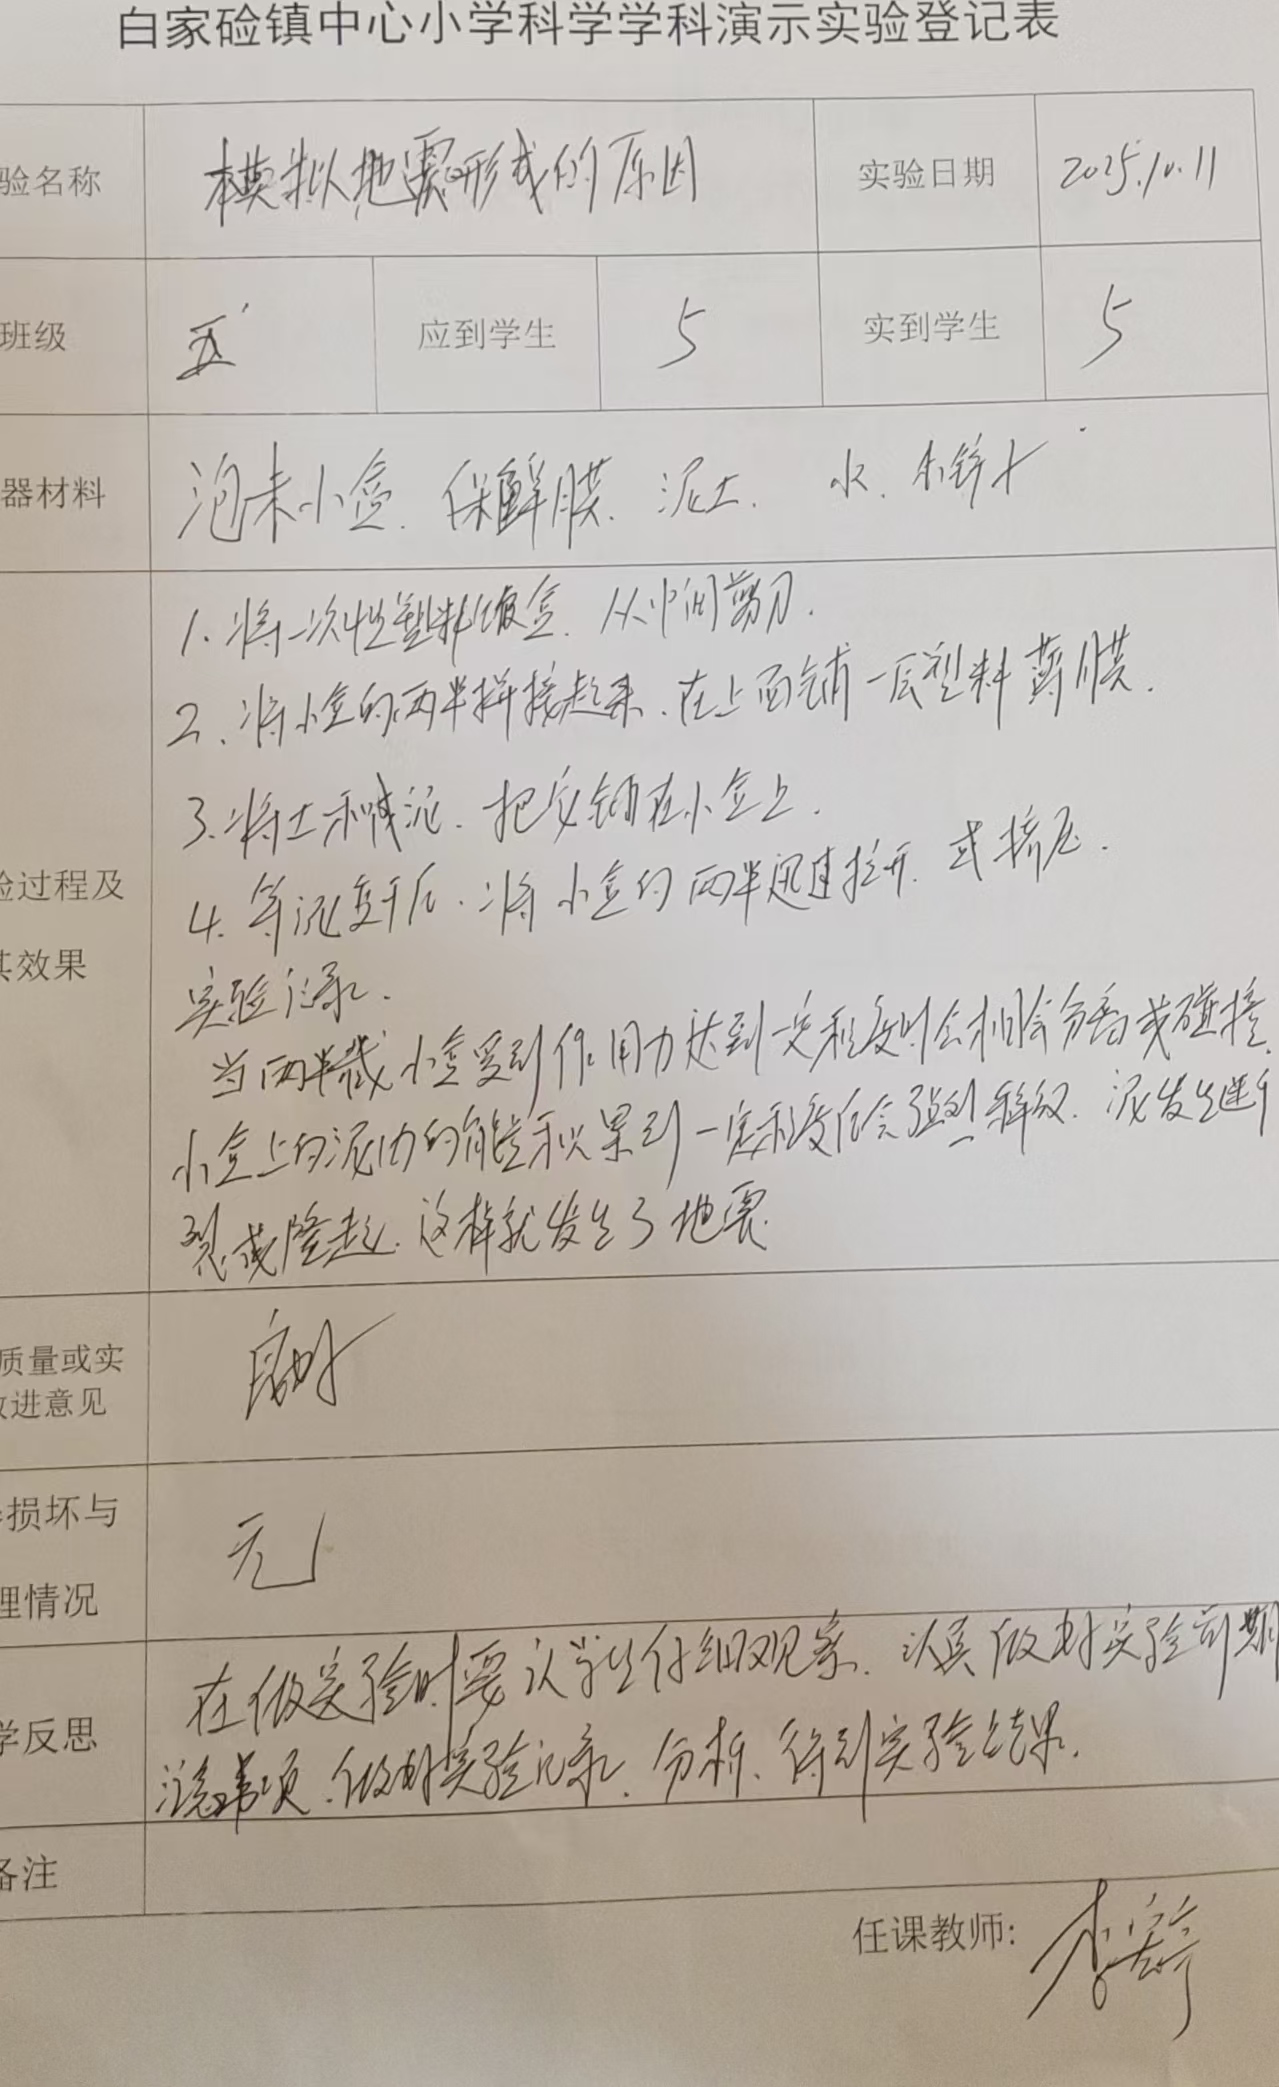 白家硷镇中心小学科学学科演示实验登记表
验名称 模拟地震形成的原因 实验日期 2025.10.11
班级 五 应到学生 5 实到学生 5
器材料 泡沫小盒、保鲜膜、泥土、水、
1、将一次性塑料饭盒、从中间剪刀.
2、将小盒的两半拼接起来、在上面铺一层塑料薄膜.
3、将土和成泥、把它铺在小盒上.
4、等泥变干后、将小盒的两半迅速拉开、或挤压.
验过程及
其效果
实验记录.
当两半截小盒受到作用力达到一定程度时会相分离或碰撞.
小盒上的泥内的能积累到一定程度后会强烈释放、泥发生断
裂或隆起、这样就发生了地震.
质量或实 良好
改进意见
损坏与 无
理情况
在做实验时要认学生仔细观察、认真做好实验前期
学反思
注意事项、做好实验记录、分析、得到实验结果.
备注
任课教师: 李